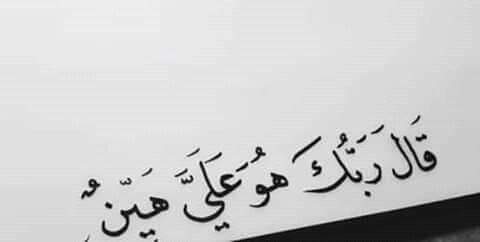 قَالَ رَبُّكَ هُوَ عَلَيَّ هَيِّنٌ